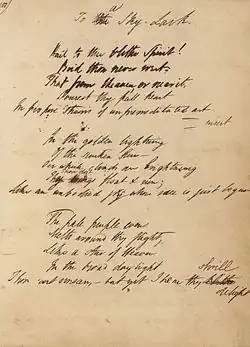 To a Sky-Lark
Hail to thee blithe Spirit!
Bird thou never wert,
That from Heaven, or near it,
Pourest thy full heart
In profuse strains of unpremeditated art
insert
In the golden lightning
Of the sunken Sun—
O'er which clouds are brightning
Thou dost float & run;
Like an unbodied joy whose race is just begun
The pale purple even
Melts around thy flight,
Like a star of Heaven
In the broad day light
shrill
Thou art unseen, — but yet I hear thy
delight